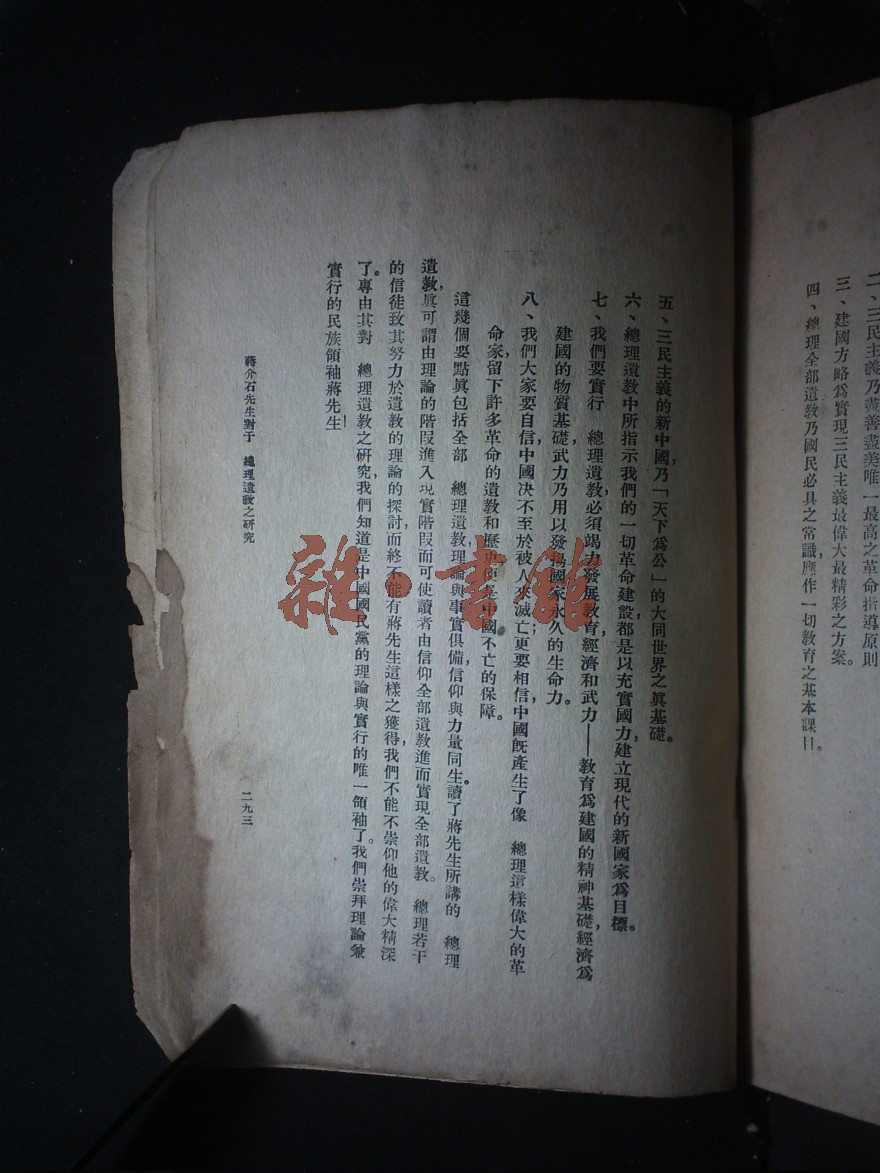 二、三民主義乃盡善盡美唯一最高之革命指導原則
三、建國方略爲實現三民主義最偉大最精彩之方案。
四、總理全部遺教乃國民必具之常識應作一切教育之基本課目。
五、三民主義的新中國，乃「天下爲公」的大同世界之眞基礎。
六、總理遺教中所指示我們的一切革命建設，都是以充實國力，建立現代的新國家爲目標。
七、我們要實行　總理遺教，必須竭力發展教育，經濟和武力——教育爲建國的精神基礎，經濟爲
建國的物質基礎，武力乃用以發揚國家永久的生命力。
八、我們大家要自信，中國决不至於被人來滅亡；更要相信，中國旣產生了像　總理這樣偉大的革
命家，留下許多革命的遺教和歷史，使是中國不亡的保障。
這幾個要點眞包括全部　總理遺教，理論與事實俱備，信仰與力量同生。讀了蔣先生所講的　總理
遺教，眞可謂由理論的階段進入現實階段，而可使讀者由信仰全部遺教進而實現全部遺教。　總理若干
的信徒致其努力於遺教的理論的探討，而終不能有蔣先生這樣之獲得，我們不能不崇仰他的偉大精深
了。專由其對　總理遺教之研究，我們知道是中國國民黨的理論與實行的唯一領袖了。我們崇拜理論兼
實行的民族領袖蔣先生！
蔣介石先生對于　總理遺教之研究
二九三
雜·書館